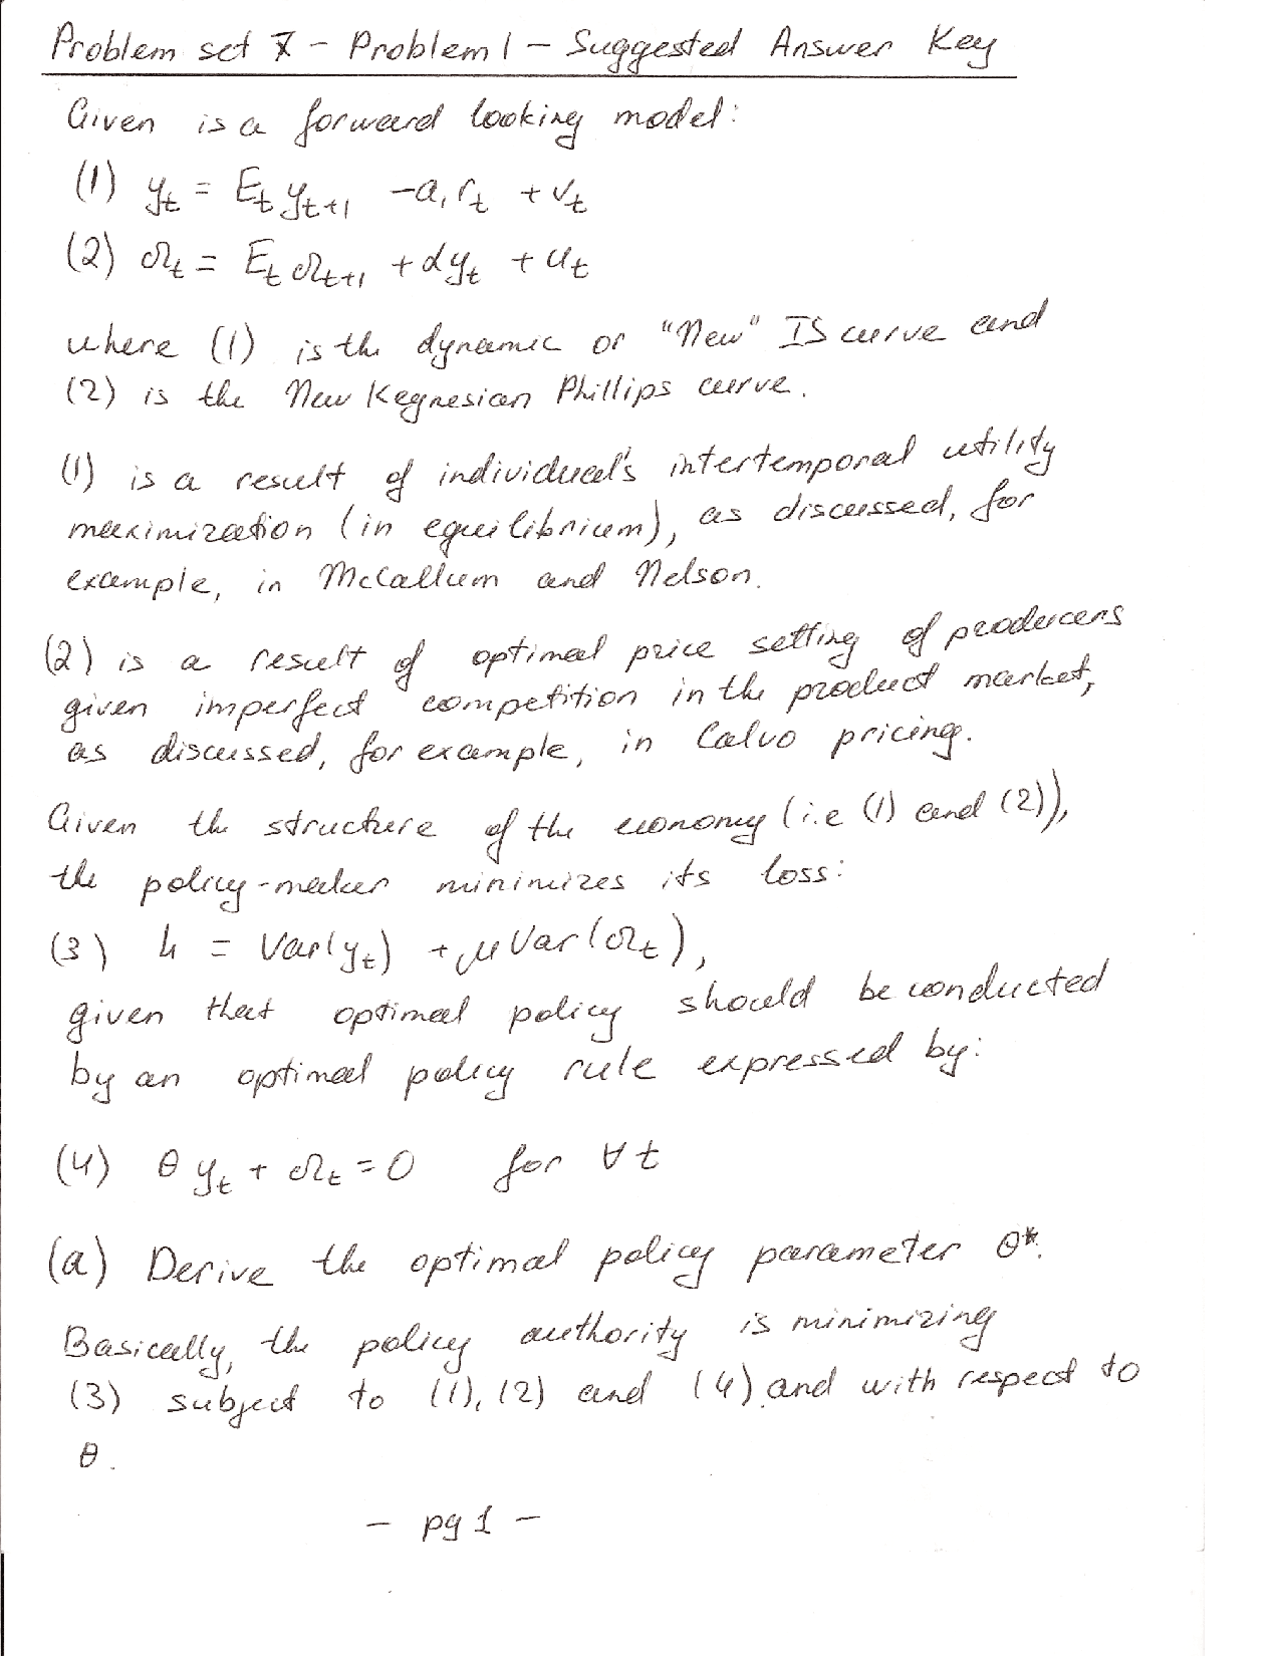 Problem set 7 - Problem 1 - Suggested Answer Key
Given is a forward looking model:
(1) yt = Et yt+1 - a1 rt + vt
(2) πt = Et πt+1 + αyt + ut
where (1) is the dynamic or "New" IS curve and
(2) is the New Keynesian Phillips curve.
(1) is a result of individual's intertemporal utility
maximization (in equilibrium), as discussed, for
example, in McCallum and Nelson.
(2) is a result of optimal price setting of producers
given imperfect competition in the product market,
as discussed, for example, in Calvo pricing.
Given the structure of the economy (i.e (1) and (2)),
the policy-maker minimizes its loss:
(3) L = Var(yt) + μVar(πt),
given that optimal policy should be conducted
by an optimal policy rule expressed by:
(4) θyt + πt = 0 for ∀t
(a) Derive the optimal policy parameter θ*.
Basically, the policy authority is minimizing
(3) subject to (1), (2) and (4) and with respect to
θ.
- pg 1 -